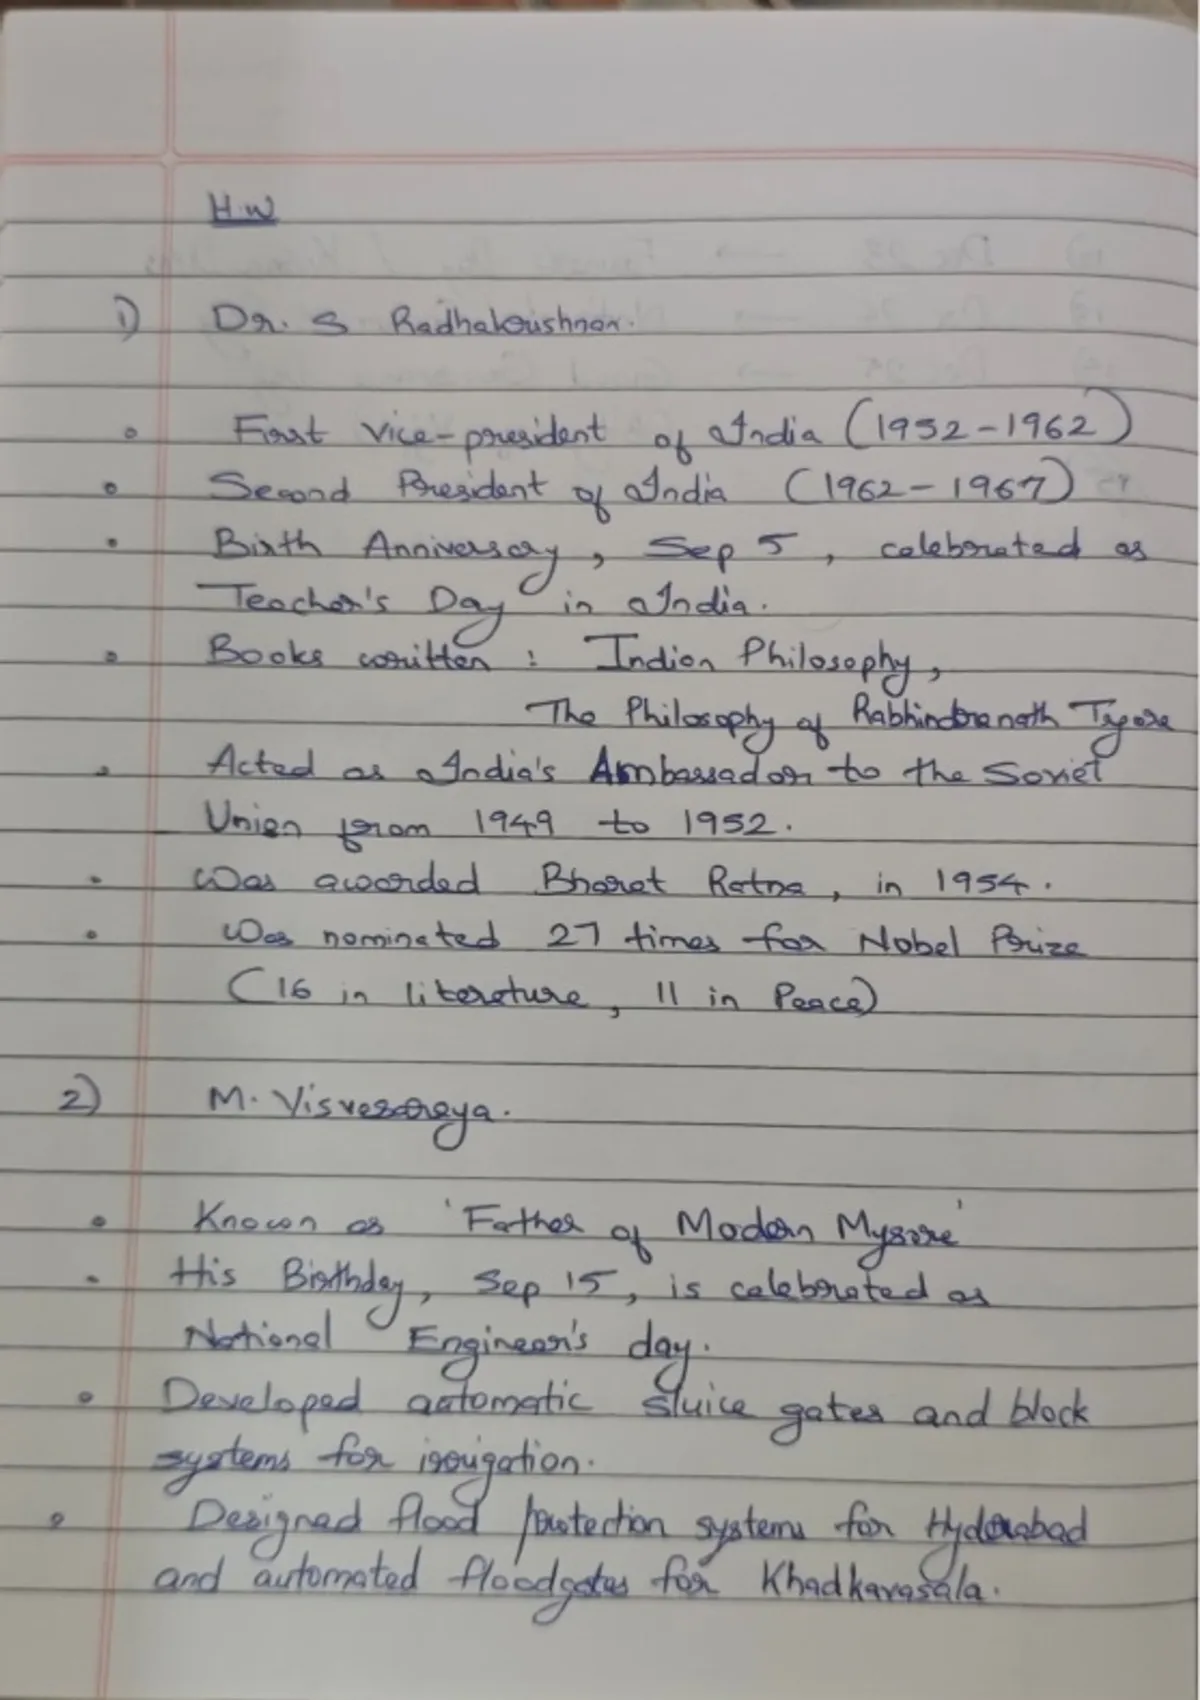 H.W
1) Dr. S Radhakrishnan.
• First Vice-president of India (1952-1962)
• Second President of India (1962-1967)
• Birth Anniversary, Sep 5, celebrated as
Teacher's Day in India.
• Books written : Indian Philosophy,
The Philosophy of Rabhindranath Tagore
• Acted as India's Ambassador to the Soviet
Union from 1949 to 1952.
• Was awarded Bharat Ratna, in 1954.
• Was nominated 27 times for Nobel Prize
(16 in literature, 11 in Peace)
2) M. Visvesaraya.
• Known as 'Father of Modern Mysore'
• His Birthday, Sep 15, is celebrated as
National Engineer's day.
• Developed automatic sluice gates and block
systems for irrigation.
• Designed flood protection systems for Hyderabad
and automated floodgates for Khadkavasala.